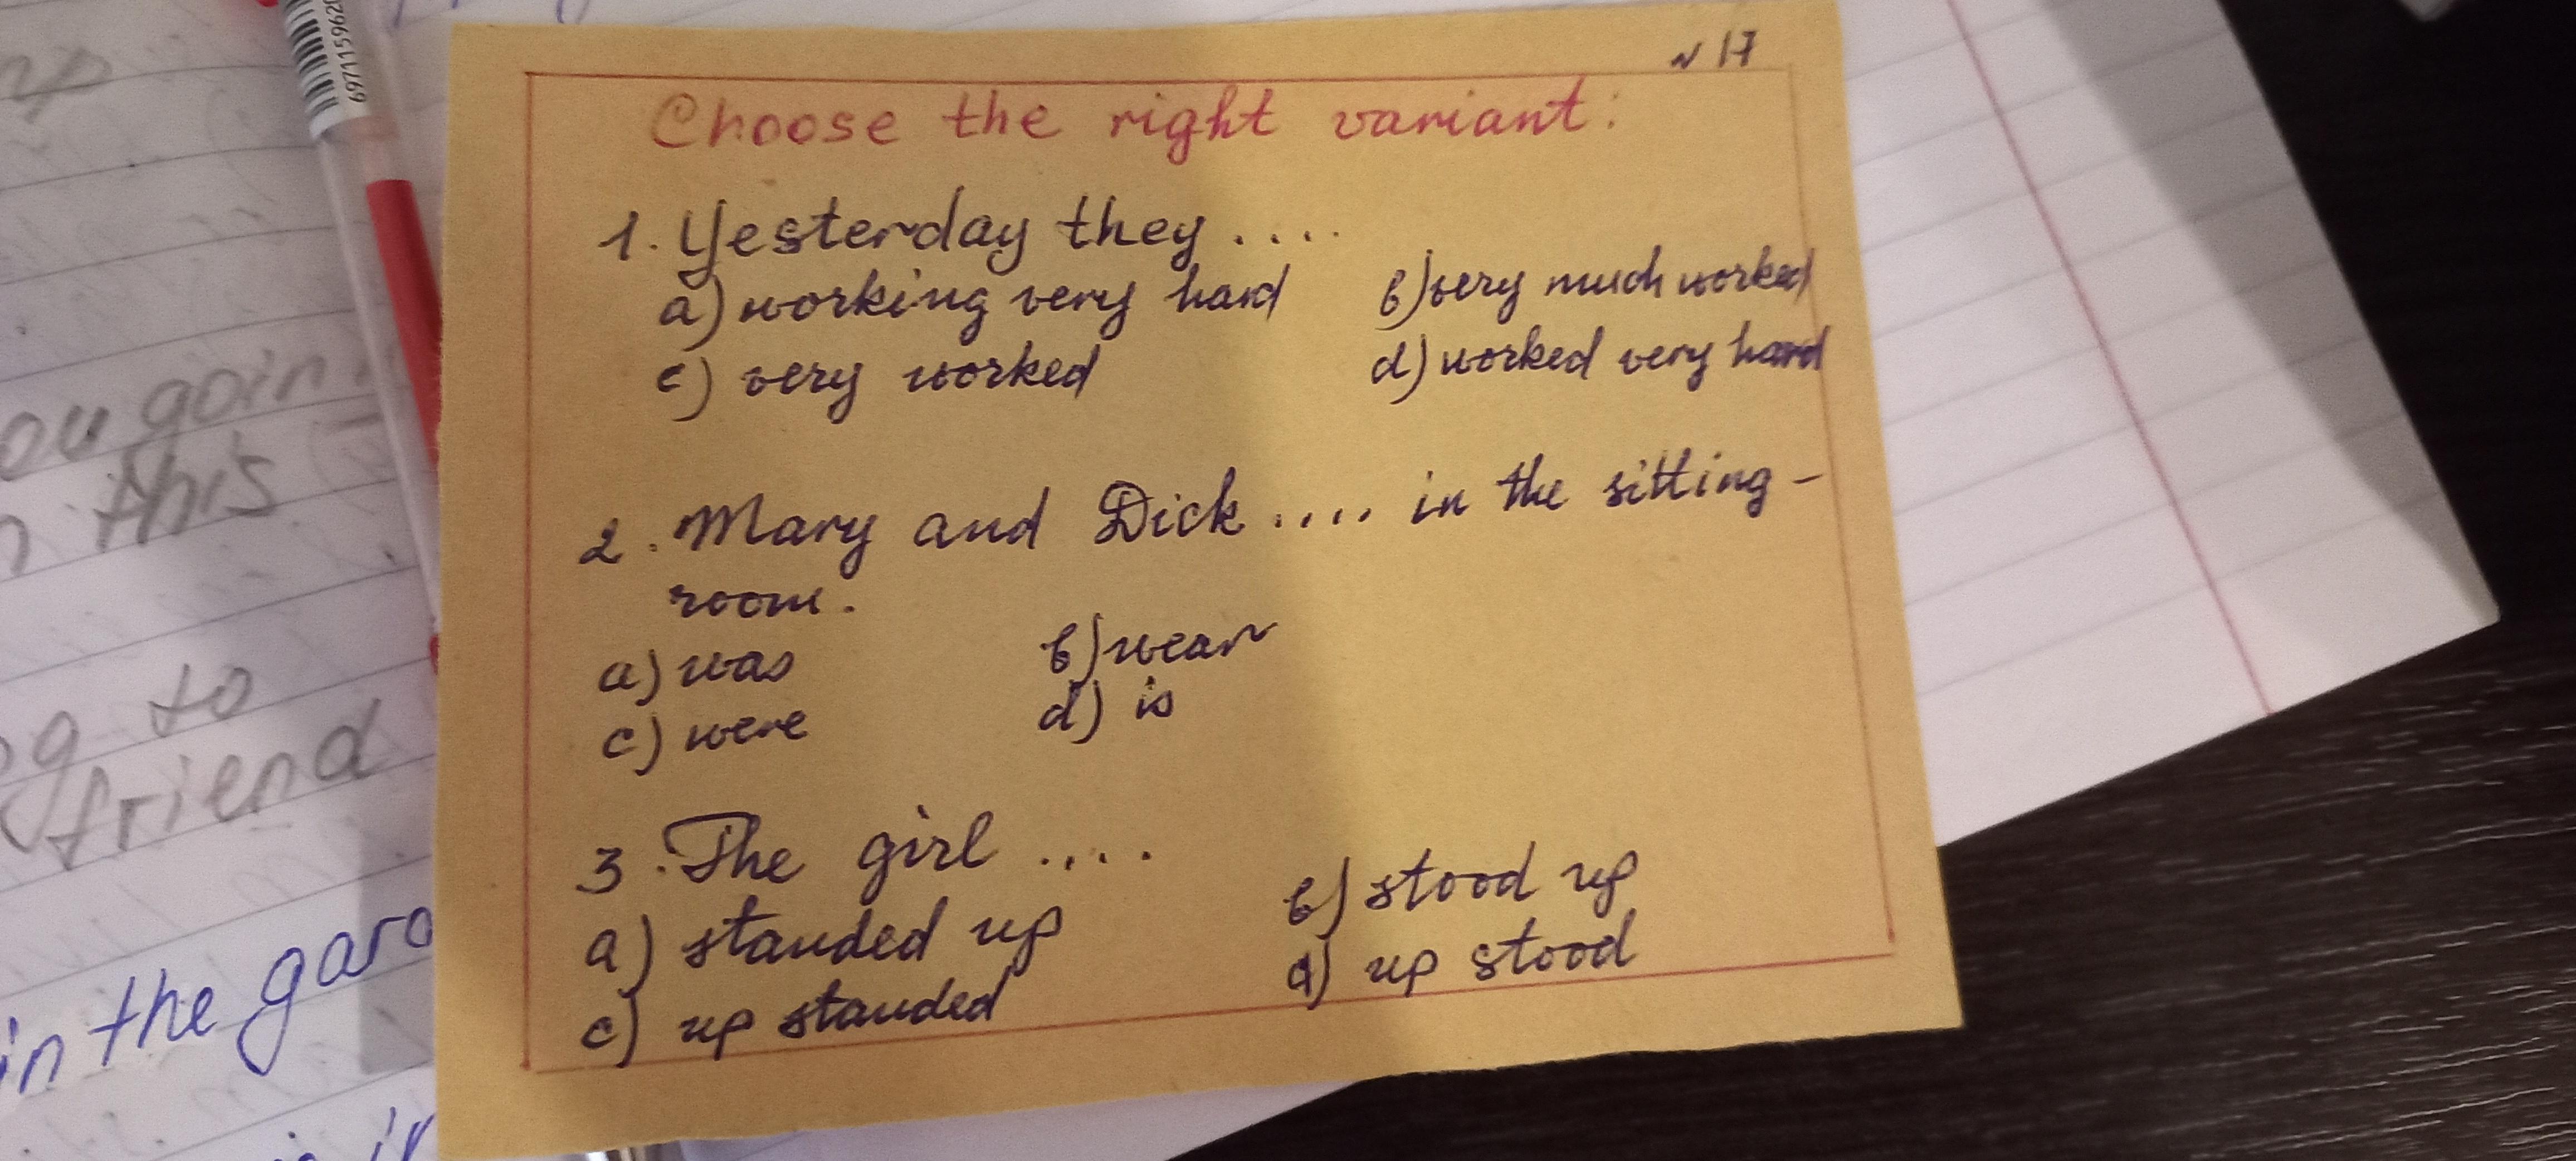 № 17
Choose the right variant:
1. Yesterday they ....
a) working very hard b) very much worked
c) very worked d) worked very hard
2. Mary and Dick .... in the sitting-
room.
a) was b) wear
c) were d) is
3. The girl ....
a) standed up b) stood up
c) up standed d) up stood
ou goin
this
to
friend
in the gard